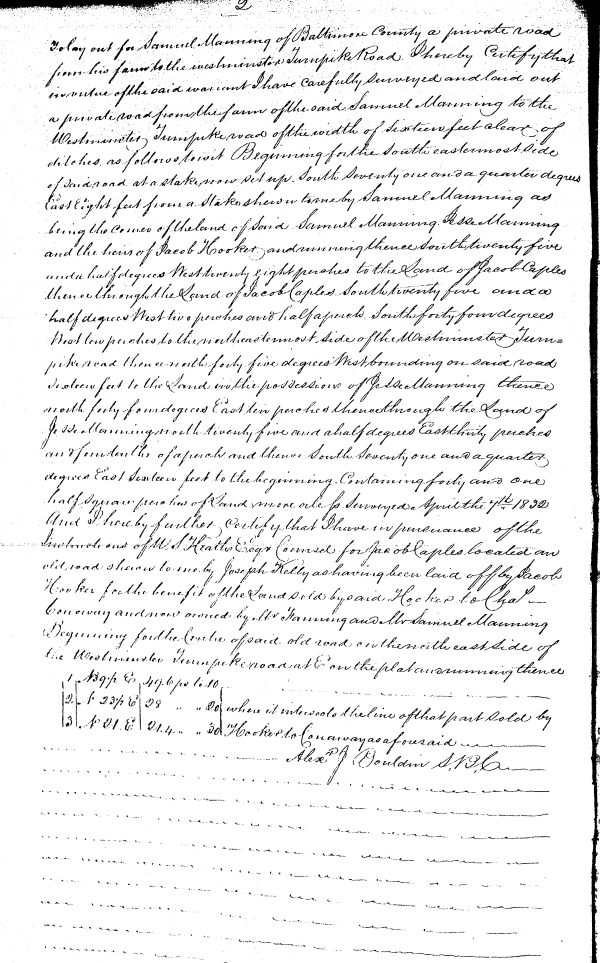 2
To lay out for Samuel Manning of Baltimore County a private road
from his farm to the westminster Turnpike Road I hereby Certify that
in virtue of the said warrant I have carefully surveyed and laid out
a private road from the farm of the said Samuel Manning to the
Westminster Turnpike road of the width of sixteen feet clear of
ditches, as follows, to wit Beginning for the South easternmost side
of said road at a stake now set up South seventy one and a quarter degrees
East Eight feet from a stake shewn to me by Samuel Manning as
being the corner of the land of said Samuel Manning Jesse Manning
and the heirs of Jacob Hooker, and running thence South twenty five
and a half degrees West twenty eight perches to the Land of Jacob Caples
thence through the Land of Jacob Caples South twenty five and a
half degrees West two perches and half a perch South forty four degrees
West ten perches to the north easternmost side of the Westminster Turn=
pike road thence north forty five degrees West bounding on said road
sixteen feet to the Land in the possession of Jesse Manning thence
north forty four degrees East ten perches thence through the Land of
Jesse Manning north twenty five and a half degrees East thirty perches
and four tenths of a perch and thence South seventy one and a quarter
degrees East Sixteen feet to the beginning. Containing forty and one
half square perches of Land more or less Surveyed April the 7th 1832
And I hereby further certify that I have in pursuance of the
Instructions of Heath Esqr Counsel for Jacob Caples located an
old road shewn to me by Joseph Kelly as having been laid off by Jacob
Hooker for the benefit of the Land sold by said Hooker to Chas
Conaway and now owned by Mr Fanning and Mr Samuel Manning
Beginning for the Centre of said old road on the north east side of
the Westminster Turnpike road at E on the plat and running thence
1 N 39½ E 49.6 ps to 10
2 N 23½ E 28 " " 20 where it intersects the line of that part sold by
3 N 21. E 21.4 " " 30 Hooker to Conaway as aforesaid
Alexr J Bouldin S.B.C.